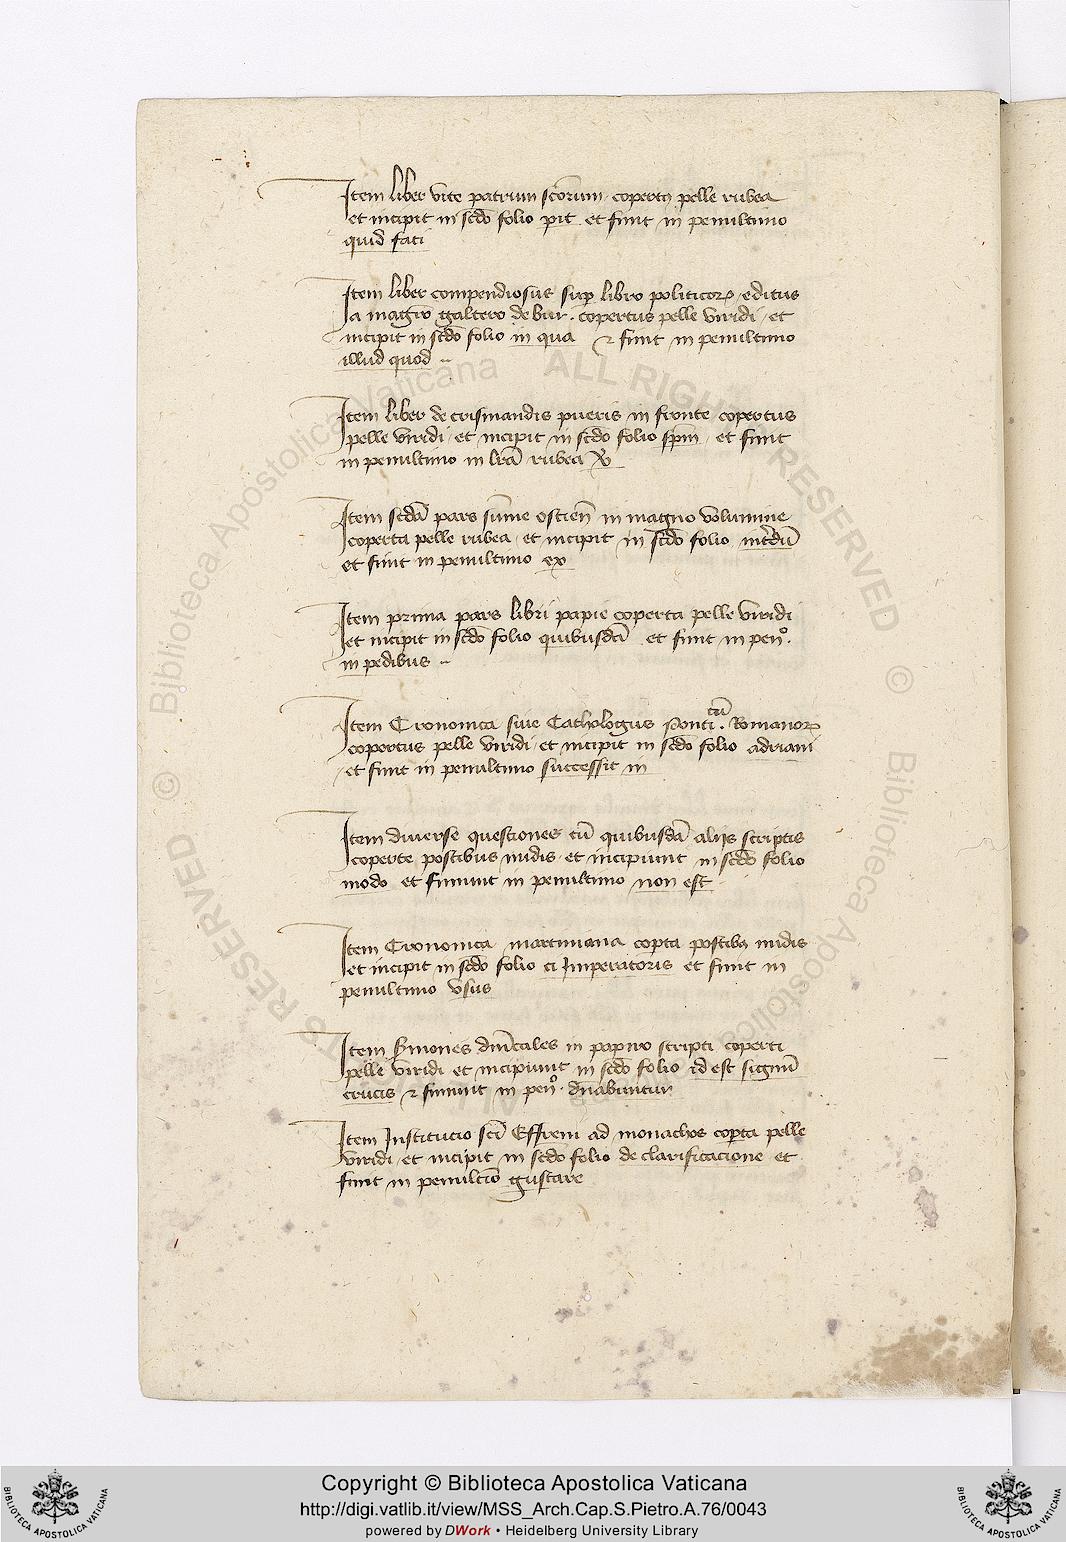 Item liber vite patrum sco̅rum coperto̅ pelle rubea
et incipit in scd̅o folio pit et finit in penultimo
quid fati
Item liber compendiosus sup̱ libro politicoꝝ editus
a magr̅o galtero de bur. copertus pelle viridi et
incipit in scd̅o folio in qua ⁊ finit in penultimo
illud quod
Item liber de crismandis pueris in fronte copertus
pelle viridi et incipit in scd̅o folio sp̅m et finit
in penultimo in lr̅a rubea
Item scda̅ pars sum̅e ostien̅ in magno volumine
coperta pelle rubea et incipit in scd̅o folio
et finit in penultimo ex
Item prima pars libri papie coperta pelle viridi
et incipit in scd̅o folio quibusda̅ et finit in penº.
in pedibus
Item Cronomica siue Cathologus Ponti.cu̅ Romanoꝝ
copertus pelle viridi et incipit in scd̅o folio adriani
et finit in penultimo successit in
Item diuerse questiones cu̅ quibusda̅ alijs scriptis
coperte postibus nudis et incipiunt in scd̅o folio
modo et finiunt in penultimo non est
Item Cronomica martiniana cop̱ta postibꝫ nudis
et incipit in scd̅o folio ci Imperatoris et finit in
penultimo vsus
Item s̱mones dn̅icales in papiro scripti coperti
pelle viridi et incipiunt in scd̅o folio id est signu̅
crucis ⁊ finiunt in penº. dn̅abuntur
Item Institucio sci̅ Effrem ad monachos cop̱ta pelle
viridi et incipit in scd̅o folio de clarificacione et
finit in penultio̅ gustare
© Biblioteca Apostolica Vaticana ALL RIGHTS RESERVED © Biblioteca Apostolica Vaticana ALL RIGHTS RESERVED
Copyright © Biblioteca Apostolica Vaticana
http://digi.vatlib.it/view/MSS_Arch.Cap.S.Pietro.A.76/0043
powered by DWork • Heidelberg University Library
BIBLIOTECA APOSTOLICA VATICANA
BIBLIOTECA APOSTOLICA VATICANA